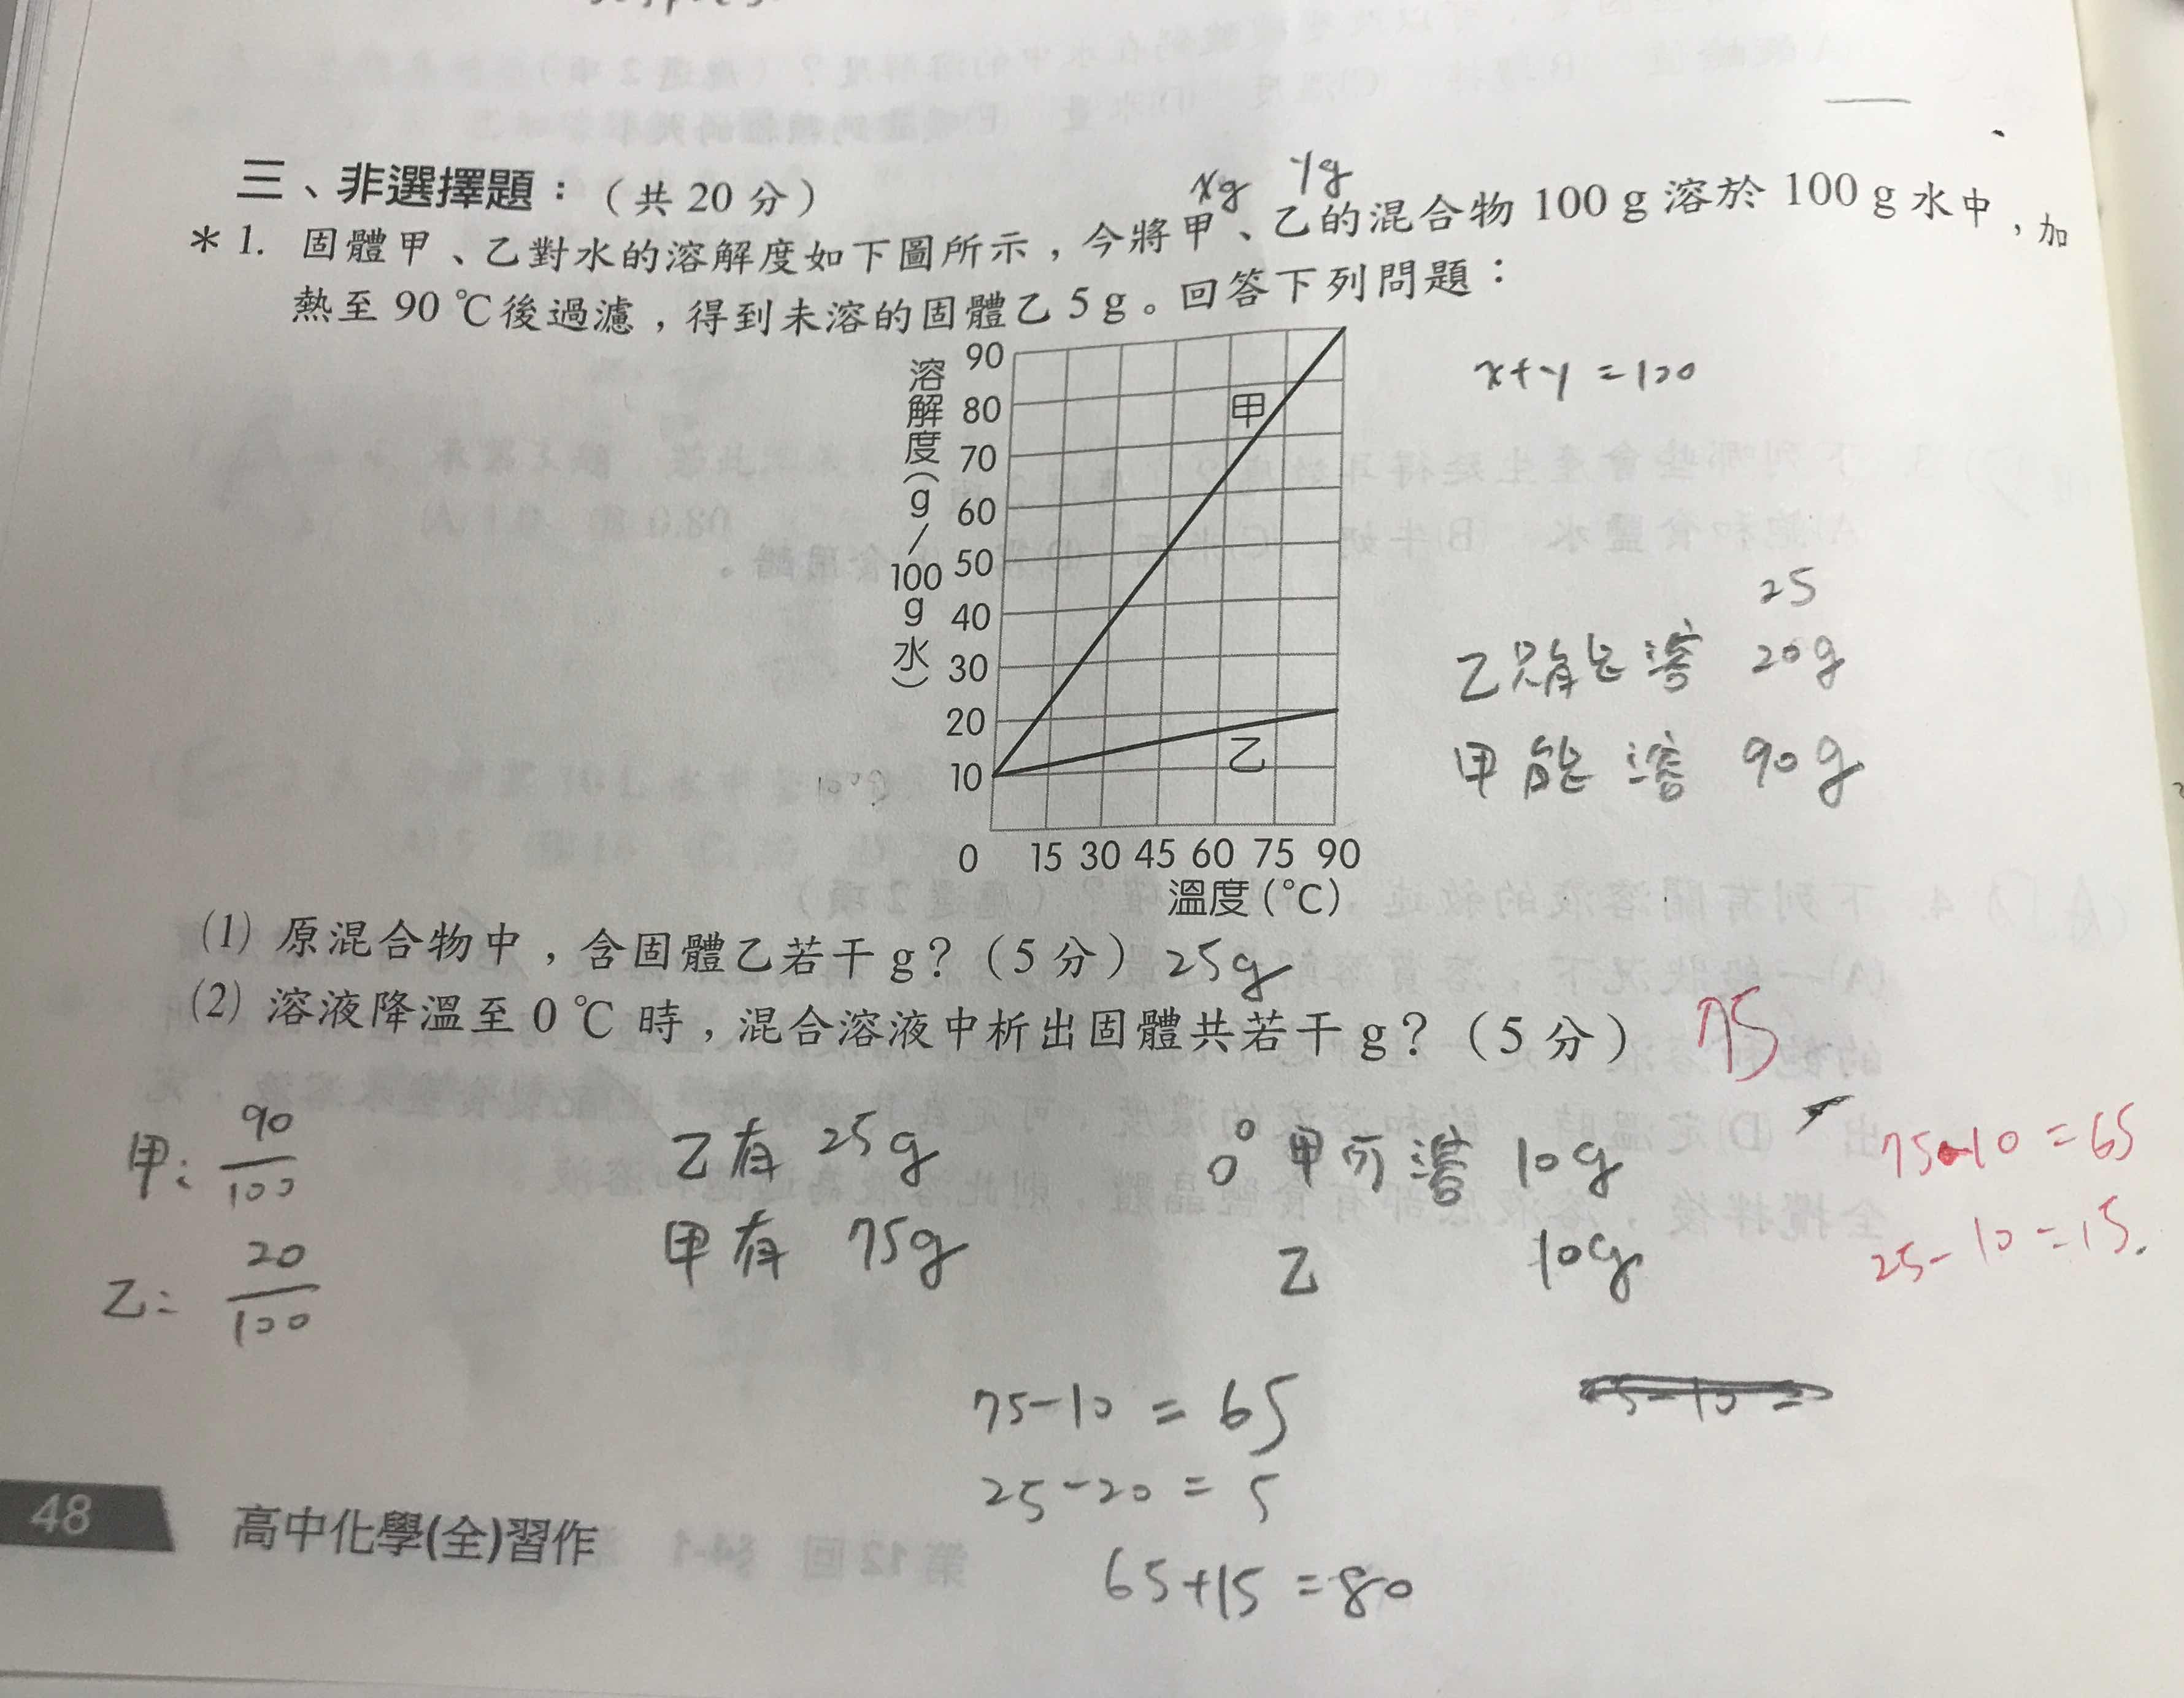 三、非選擇題：（共 20 分）
xg yg
＊1. 固體甲、乙對水的溶解度如下圖所示，今將甲、乙的混合物 100 g 溶於 100 g 水中，加
熱至 90 ℃後過濾，得到未溶的固體乙 5 g。回答下列問題：
溶解度(g/100g水)
90
80
70
60
50
40
30
20
10
0 15 30 45 60 75 90
溫度(℃)
甲
乙
x+y=100
25
乙只能溶 20g
甲能溶 90g
(1) 原混合物中，含固體乙若干 g？（5 分） 25g
(2) 溶液降溫至 0 ℃ 時，混合溶液中析出固體共若干 g？（5 分） 75
甲: 90/100
乙: 20/100
乙有 25g
甲有 75g
0° 甲可溶 10g
乙 10g
75-10=65
25-10=15.
75-10=65
25-20=5
65+15=80
48 高中化學(全)習作